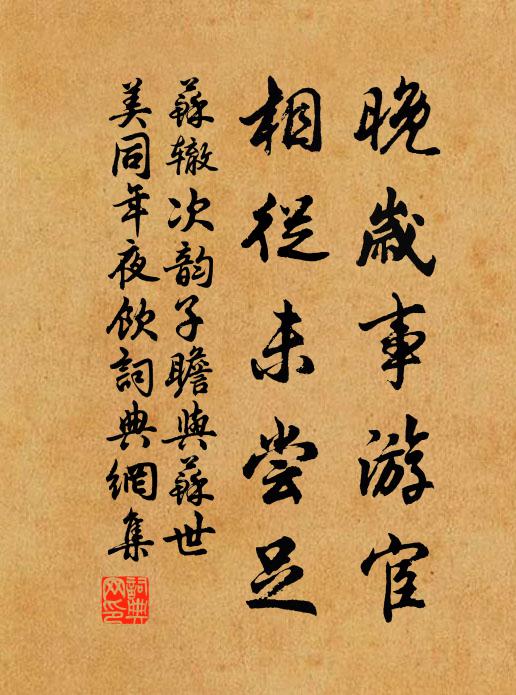 晚歲事游宦
相從未尝足
蘇辙次韵子瞻與蘇世
美同年夜飲詞典網集
詞典
网印